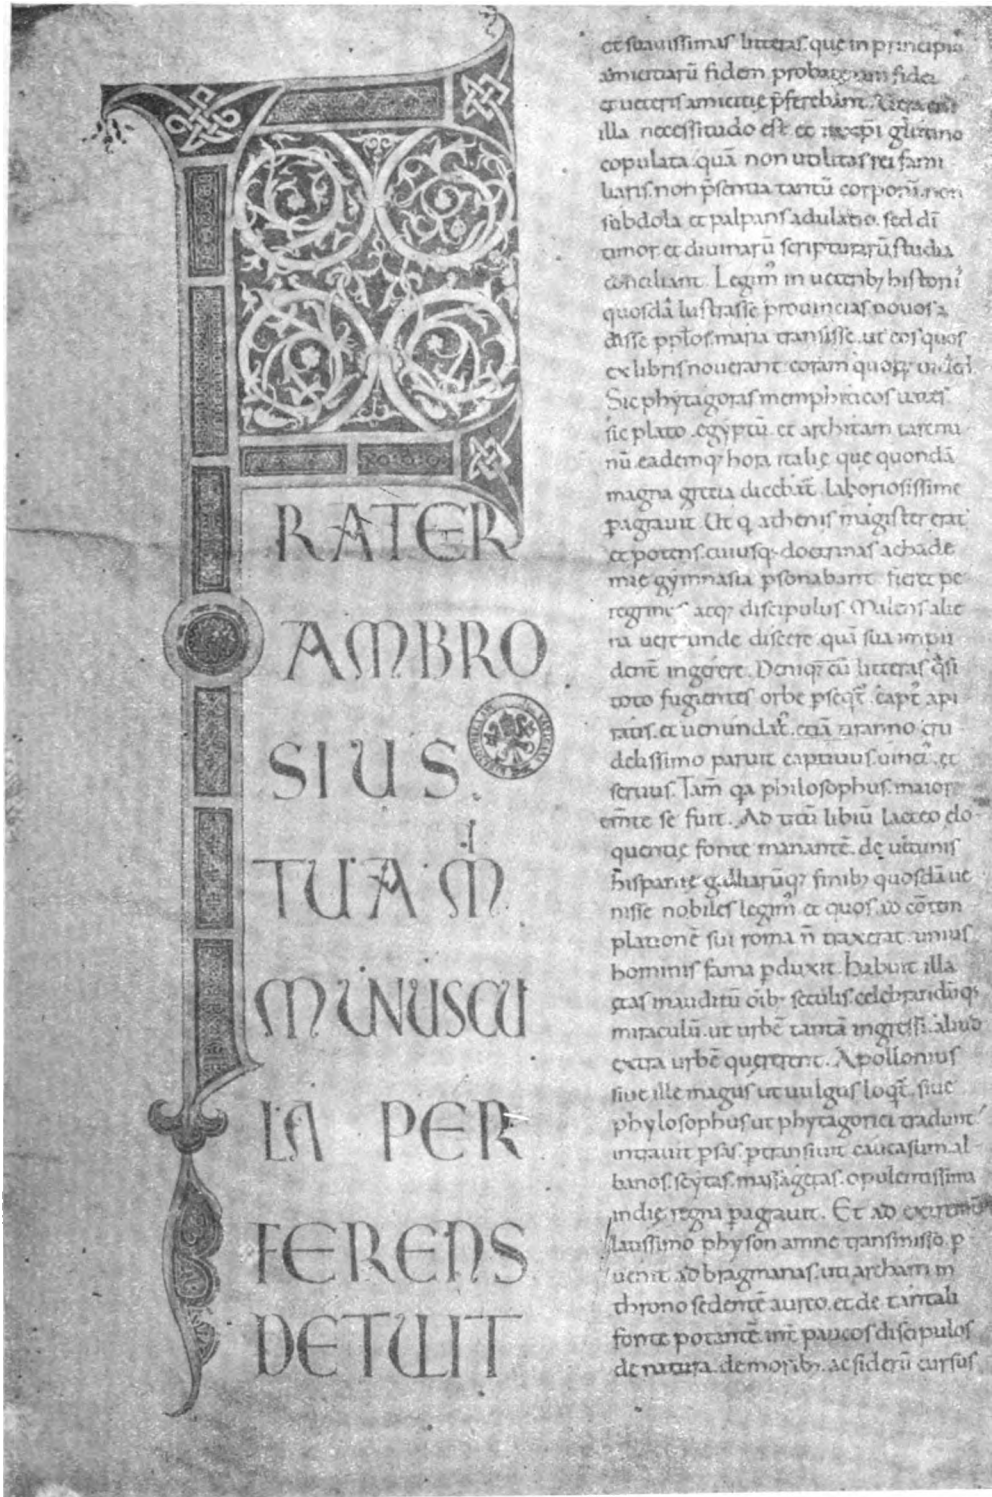 F
RATER
AMBRO
SIUS
TUA M̊
MUNUSCU
LA PER
FERENS
DETULIT
et suauissimas litteras. que in principio
amicitiarū fidem probate iam fidei
et ueteris amicitie p̄ferebant. Uera eni
illa necessitudo est. et
copulata. quā non utilitas rei fami
liaris. non p̄sentia tantū corporū. non
subdola et palpans adulatio. sed dī
timor. et diuinarū scripturarū studia
conciliant. Legim᷒ in ueterib; historii᷒
quosdā lustrasse prouincias. nouos a
disse pplos. maria transisse. ut eos quos
ex libris nouerant. coram quoq; uider̄.
Sic phytagoras memphiticos uates.
sic plato. egyptū. et architam tarenti
nū. eademq; hora italie que quondā
magna grecia dicebat̄. laboriosissime
pagrauit. Ut q athenis magister erat
et potens. cuiusq; doctrinas achade
mie gymnasia psonabant. fieret pe
regrinus atq; discipulus. Malens alie
na uere unde discere. quā sua impu
dent̄ ingerere. Deniq; cū litteras q̄si
toto fugientes orbe pseqt̄. capt᷒ a pi
ratis. et uenundat᷒. etiā tiranno cru
delissimo paruit captiuus. uinct᷒. et
seruus. Tam̄ qa philosophus. maior
emte se fuit. Ad titū libiū lacteo elo
quentie fonte manantē. de ultimis
hispanie galliarūq; finib; quosdā ue
nisse nobiles legim᷒ et quos ad cōtem
plationē sui roma n̄ traxerat. unius
hominis fama pduxit. Habuit illa
etas inauditū oīb; seculis. celebrandūq;
miraculū. ut urbē tantā ingressi. aliud
extra urbē quererent. Apollonius
siue ille magus ut uulgus loqt̄. siue
phylosophus ut phytagorici tradunt
intrauit psas. ptransiuit caucasum. al
banos. scytas. massagetas. opulentissima
indie regna pagrauit. Et ad extremū
latissimo physon amne transmisso. p
uenit ad bragmanas. uti archam in
throno sedentē aureo. et de tantali
fonte potantē. int̄ paucos discipulos
de natura. de morib;. ac siderū cursus